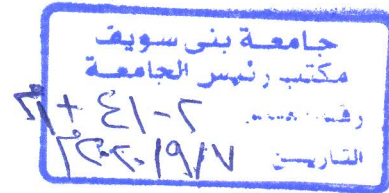 جامعة بنى سويف
مكتب رئيس الجامعة
رقم ٢-٤١
التاريخ ٢٠٢٠/٩/٧